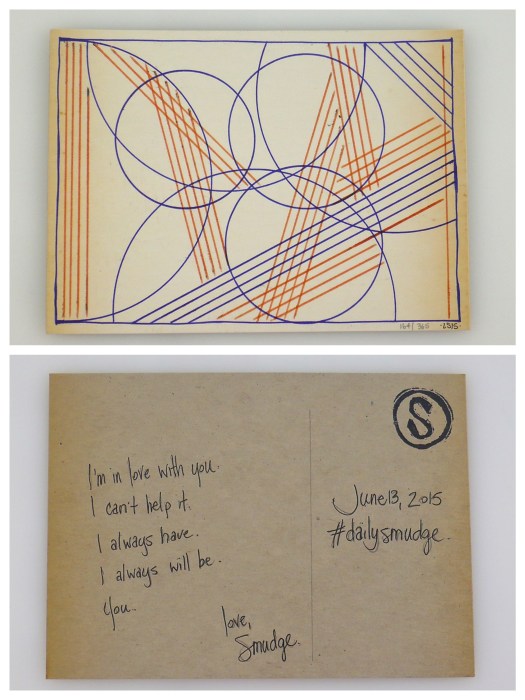 164/365 -2015-
S
I'm in love with you.
I can't help it.
I always have.
I always will be.
You.
love,
Smudge.
June 13, 2015
#dailysmudge.